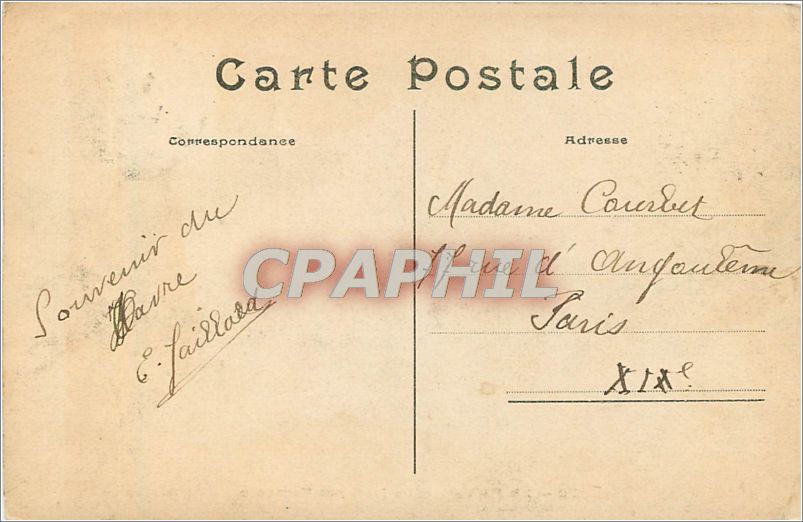 Carte Postale
Correspondance
Adresse
Souvenir du
Havre
E.
Madame Courbet
rue d' Angoulême
Paris
XIXe
CPAPHIL